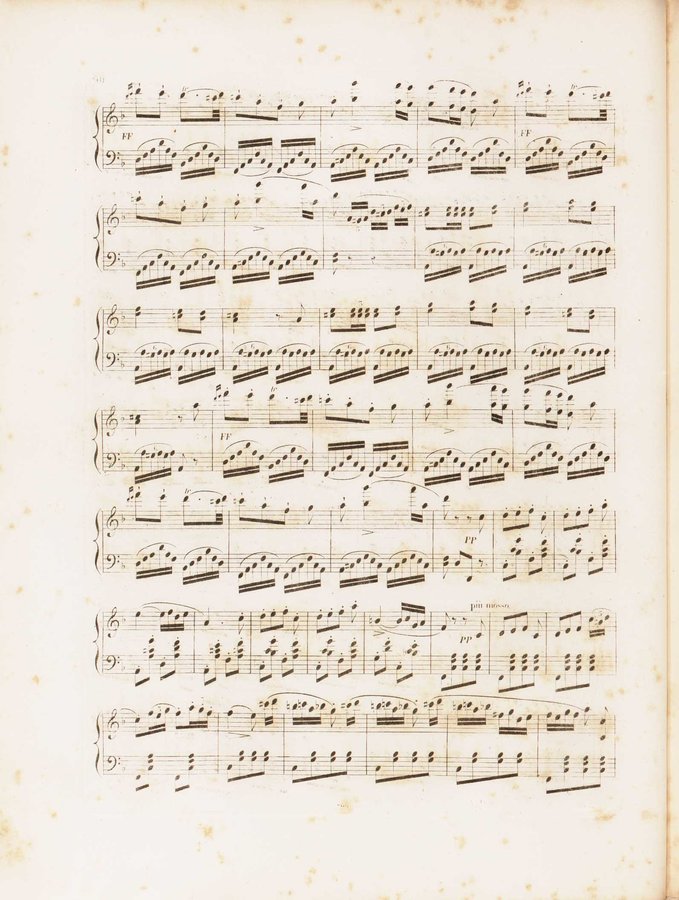 tr
tr
FF
FF
tr
FF
tr
PP
più mosso.
PP